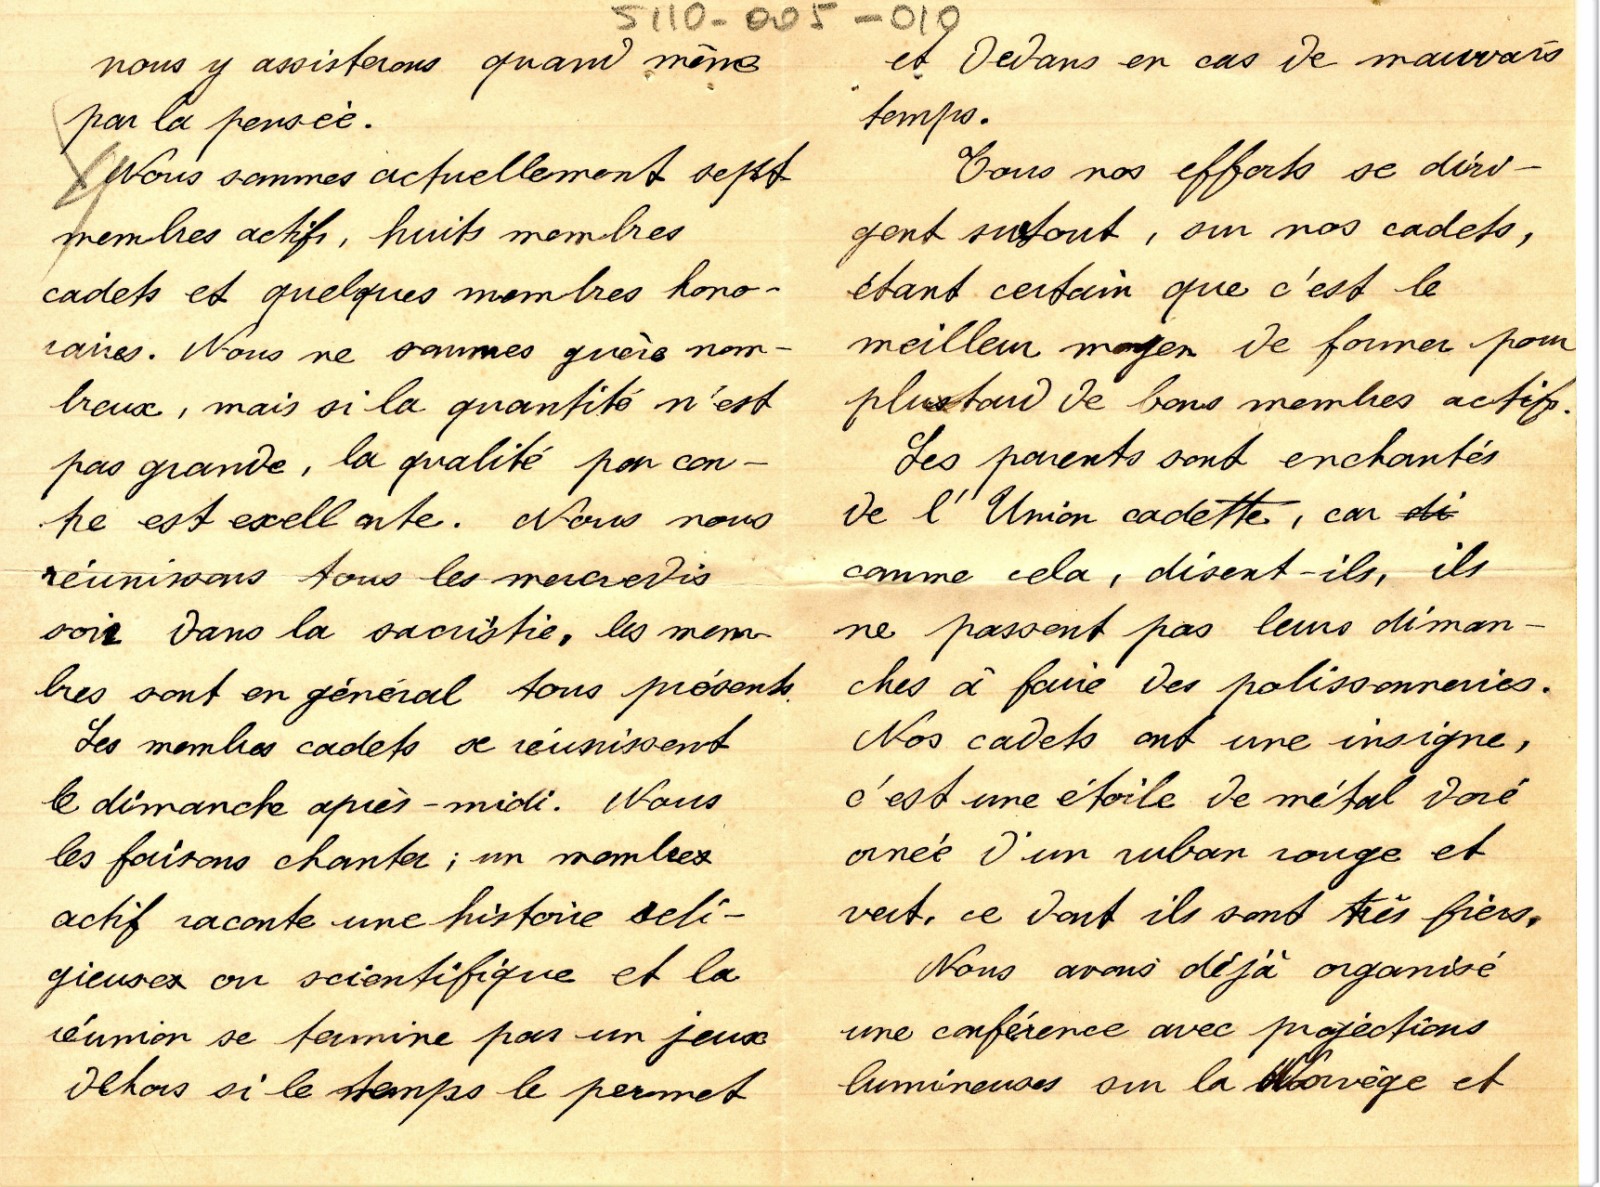 5110-005-010
nous y assisterons quand même
par la pensée.
Nous sommes actuellement sept
membres actifs, huits membres
cadets et quelques membres hono-
raires. Nous ne sommes guère nom-
breux, mais si la quantité n'est
pas grande, la qualité par con-
tre est exellente. Nous nous
réunissons tous les mercredis
soir dans la sacristie, les mem-
bres sont en général tous présents.
Les membres cadets se réunissent
le dimanche après-midi. Nous
les faisons chanter; un membre
actif raconte une histoire reli-
gieuse ou scientifique et la
réunion se termine par un jeux
dehors si le temps le permet
et dedans en cas de mauvais
temps.
Tous nos efforts se diri-
gent surtout, sur nos cadets,
étant certain que c'est le
meilleur moyen de former pour
plus tard de bons membres actifs.
Les parents sont enchantés
de l'Union cadette, car di
comme cela, disent-ils, ils
ne passent pas leurs diman-
ches à faire des polissonneries.
Nos cadets ont une insigne,
c'est une étoile de métal doré
ornée d'un ruban rouge et
vert, ce dont ils sont très fiers.
Nous avons déjà organisé
une conférence avec projections
lumineuses sur la Norvège et